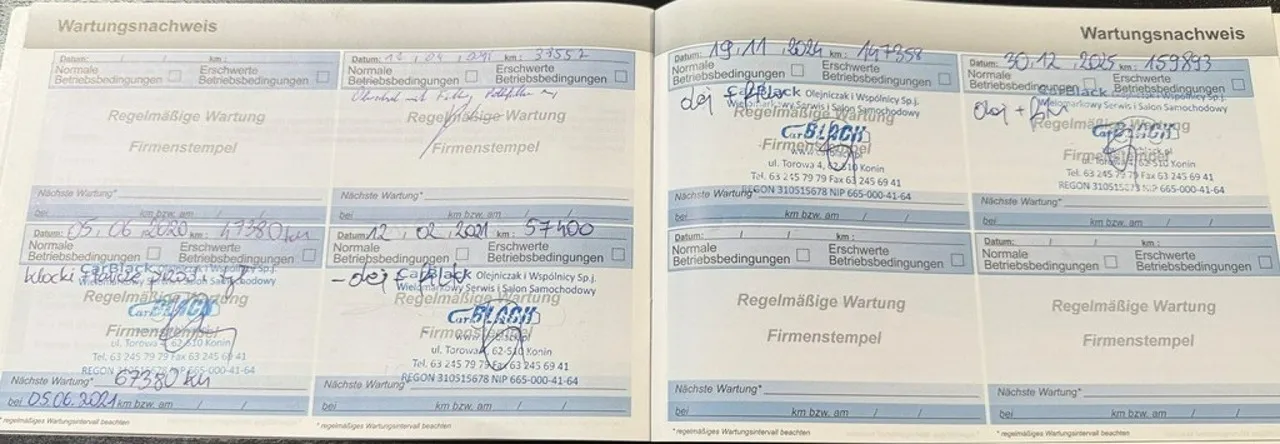 Wartungsnachweis
Datum: / / km:
Normale Betriebsbedingungen
Erschwerte Betriebsbedingungen
Regelmäßige Wartung
Firmenstempel
Nächste Wartung*
bei / / km bzw. am / /
Datum: km: 39557
Normale Betriebsbedingungen
Erschwerte Betriebsbedingungen
Regelmäßige Wartung
Firmenstempel
Nächste Wartung*
bei km bzw. am / /
Datum: 05.06.2020 km: 47380 km
Normale Betriebsbedingungen
Erschwerte Betriebsbedingungen
klocki
CarBlack
Wielomarkowy Serwis i Salon Samochodowy
Regelmäßige Wartung
Car BLACK
Firmenstempel
ul. Torowa 4, 62-510 Konin
Tel. 63 245 79 79 Fax 63 245 69 41
REGON 310515678 NIP 665-000-41-64
Nächste Wartung* 67380 km
bei 05.06.2021 km bzw. am / /
* regelmäßiges Wartungsintervall beachten
Datum: 12.02.2021 km: 57400
Normale Betriebsbedingungen
Erschwerte Betriebsbedingungen
- olej
CarBlack Olejniczak i Wspólnicy Sp.j.
Wielomarkowy Serwis i Salon Samochodowy
Regelmäßige Wartung
Car BLACK
Firmenstempel
ul. Torowa 4, 62-510 Konin
Tel. 63 245 79 79 Fax 63 245 69 41
REGON 310515678 NIP 665-000-41-64
Nächste Wartung*
bei km bzw. am / /
* regelmäßiges Wartungsintervall beachten
Wartungsnachweis
Datum: 19.11.2024 km: 147358
Normale Betriebsbedingungen
Erschwerte Betriebsbedingungen
olej
CarBlack Olejniczak i Wspólnicy Sp.j.
Wielomarkowy Serwis i Salon Samochodowy
Regelmäßige Wartung
Car BLACK
Firmenstempel
www.carblack.pl
ul. Torowa 4, 62-510 Konin
Tel. 63 245 79 79 Fax 63 245 69 41
REGON 310515678 NIP 665-000-41-64
Nächste Wartung*
bei km bzw. am / /
Datum: 30.12.2025 km: 159893
Normale Betriebsbedingungen
Erschwerte Betriebsbedingungen
olej +
CarBlack Olejniczak i Wspólnicy Sp.j.
Wielomarkowy Serwis i Salon Samochodowy
Regelmäßige Wartung
Car BLACK
Firmenstempel
ul. Torowa 4, 62-510 Konin
Tel. 63 245 79 79 Fax 63 245 69 41
REGON 310515678 NIP 665-000-41-64
Nächste Wartung*
bei km bzw. am / /
Datum: / / km:
Normale Betriebsbedingungen
Erschwerte Betriebsbedingungen
Regelmäßige Wartung
Firmenstempel
Nächste Wartung*
bei km bzw. am / /
* regelmäßiges Wartungsintervall beachten
Datum: / / km:
Normale Betriebsbedingungen
Erschwerte Betriebsbedingungen
Regelmäßige Wartung
Firmenstempel
Nächste Wartung*
bei km bzw. am / /
* regelmäßiges Wartungsintervall beachten